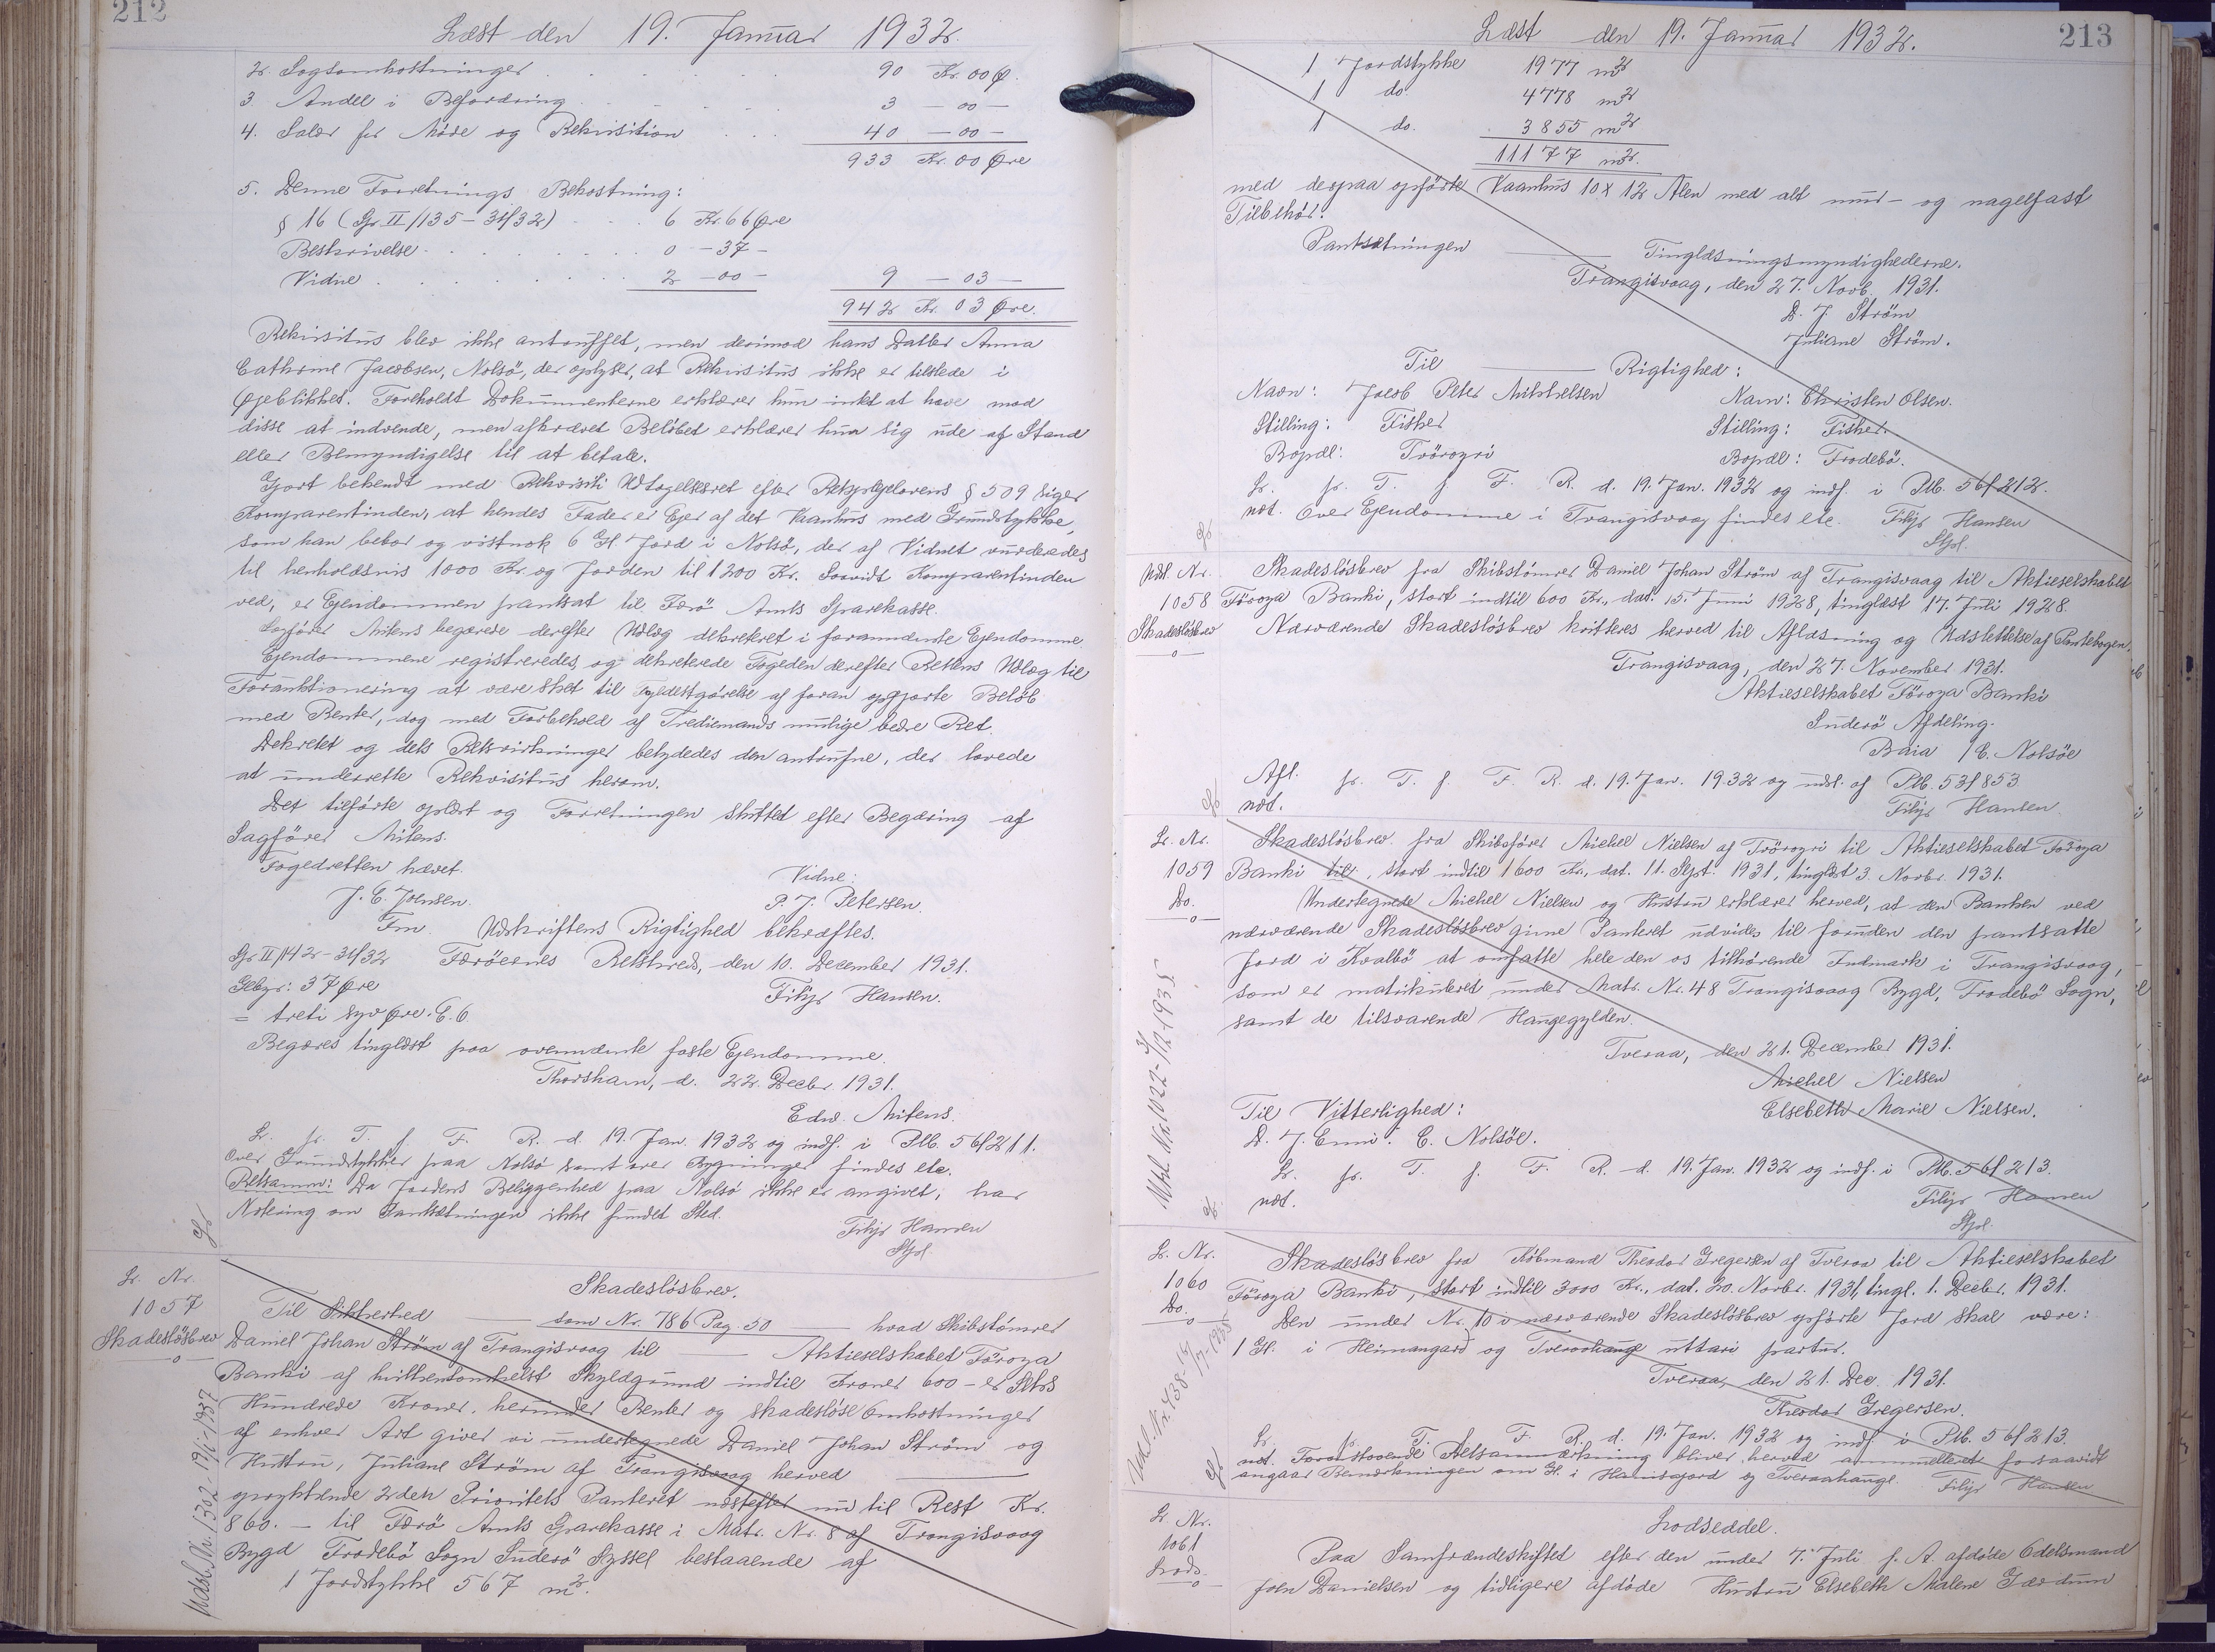 212
Læst den 19. Januar 1932.
2. Sagsomkostninger . . . . . 90 Kr. 00 Ø.
3. Andel i Befordring . . . . 3 — 00 —
4. Salær for Møde og Rekvisition . . . 40 — 00 —
933 Kr. 00 Øre
5. Denne Forretnings Bekostning:
§ 16 (Gr. II/135-31/32) . . 6 Kr. 66 Øre
Beskrivelse . . . . . . . 0 — 37 —
Vidne . . . . . . . . 2 — 00 — 9 — 03 —
942 Kr. 03 Øre.
Rekvisitus blev ikke antruffet, men derimod hans Datter Anna
Cathrine Jacobsen, Nolsö, der oplyser, at Rekvisitus ikke er tilstede i
Øjeblikket. Foreholdt Dokumenterne erklærer hun intet at have mod
disse at indvende, men afkrævet Beløbet erklærer hun sig ude af Stand
eller Bemyndigelse til at betale.
Gjort bekendt med Rekvisiti Udtagelsesret efter Retsplejelovens § 509 siger
Komparentinden, at hendes Fader er Ejer af det Vaanhus med Grundstykke,
som han bebor og vistnok 6 Gl. Jord i Nolsö, der af Vidnet vurderedes
til henholdsvis 1000 Kr. og Jorden til 1200 Kr. Saavidt Komparentinden
ved, er Ejendommen pantsat til Færö Amts Sparekasse.
Sagfører Mitens begærede derefter Udlæg dekreteret i forannævnte Ejendomme.
Ejendommene registreredes, og dekreterede Fogeden derefter Rettens Udlæg til
Forauktionering at være sket til Fyldestgörelse af foran opgjorte Beløb
med Renter, dog med Forbehold af Tredjemands mulige bedre Ret.
Dekretet og dets Retsvirkninger betydedes den antrufne, der lovede
at underrette Rekvisitus herom.
Det tilførte oplæst og Forretningen sluttet efter Begæring af
Sagfører Mitens.
Fogedretten hævet.
Vidne:
J. E. Joensen.
P. J. Petersen.
Fm.
Udskriftens Rigtighed bekræftes.
Gr II/142-31/32 Færöernes Retskreds, den 10. December 1931.
Gebyr: 37 Øre
Filip Hansen.
= treti syv Øre. E.6.
Begæres tinglæst paa ovennævnte faste Ejendomme.
Thorshavn, d. 22. Decbr. 1931.
Edw. Mitens.
L. fr. T. f. F. R. d. 19. Jan. 1932 og indf. i Ptb. 56f211.
Over Grundstykker paa Nolsö samt over Bygninger findes etc.
Retsanm: Da Jordens Beliggenhed paa Nolsö ikke er angivet, har
Notering om Pantsætningen ikke fundet Sted.
Filip Hansen
Stfol.
L. Nr.
1057
Skadesløsbrev
Udsl. Nr. 1302 - 19/1-1937
Skadesløsbrev.
Til Sikkerhed —— som Nr. 786 Pag. 50 —— hvad Skibstömrer
Daniel Johan Ström af Trangisvaag til —— Aktieselskabet Föroya
Banki af hvilkensomhelst Skyldgrund indtil Kroner 600 - er Seks
Hundrede Kroner, herunder Renter og skadesløse Omkostninger
af enhver Art giver vi undertegnede Daniel Johan Ström og
Hustru, Juliane Ström af Trangisvaag herved ——
oprykkende 2den Prioritets Panteret næstefter nu til Rest Kr.
860. — til Færö Amts Sparekasse i Matr. Nr. 8 af Trangisvaag
Bygd Frodebö Sogn Suderö Syssel bestaaende af
1 Jordstykke 567 m².
213
Læst den 19. Januar 1932.
1 Jordstykke 1977 m²
1 do. 4778 m²
1 do. 3855 m²
11177 m².
med derpaa opförte Vaanhus 10 x 12 Alen med alt mur- og nagelfast
Tilbehör.
Pantsætningen —— Tinglæsningsmyndighederne.
Trangisvaag, den 27. Novb. 1931.
D. J. Ström
Juliane Ström.
Til —— Rigtighed:
Navn: Jacob Peter Mikkelsen Navn: Christen Olsen.
Stilling: Fisker Stilling: Fisker.
Bopæl: Tvöroyri Bopæl: Frodebö.
L. fr. T. f. F. R. d. 19. Jan. 1932 og indf. i Ptb. 56f212.
not. Over Ejendomme i Trangisvaag findes etc. Filip Hansen
Stfol.
Udsl. Nr.
1058
Skadesløsbrev
Skadesløsbrev fra Skibstömrer Daniel Johan Ström af Trangisvaag til Aktieselskabet
Föroya Banki, stort indtil 600 Kr., dat. 15. Juni 1928, tinglæst 17. Juli 1928.
Nærværende Skadesløsbrev kvitteres herved til Aflæsning og Udslettelse af Pantebogen.
Trangisvaag, den 27. November 1931.
Aktieselskabet Föroya Banki
Suderö Afdeling.
Baia / C. Nolsöe
Afl. fr. T. f. F. R. d. 19. Jan. 1932 og udsl. af Ptb. 53f853
not.
Filip Hansen.
L. Nr.
1059
Do.
Skadesløsbrev fra Skibsfører Michel Nielsen af Tvöroyri til Aktieselskabet Föroya
Banki til, stort indtil 1600 Kr., dat. 11. Sept. 1931, tinglæst 3. Novbr. 1931.
Undertegnede Michel Nielsen og Hustru erklærer herved, at den Banken ved
nærværende Skadesløsbrev givne Panteret udvides til foruden den pantsatte
Jord i Kvalbö at omfatte hele den os tilhørende Indmark i Trangisvaag,
som er matrikuleret under Matr. Nr. 48 Trangisvaag Bygd, Frodebö Sogn,
samt de tilsvarende Haugegylden.
Tveraa, den 21. December 1931.
Michel Nielsen
Til Vitterlighed: Elsebeth Marie Nielsen.
D. J. Enni. C. Nolsöe.
L. fr. T. f. F. R. d. 19. Jan. 1932 og indf. i Ptb. 56f213.
not.
Filip Hansen
Stfol.
L. Nr.
1060
Do.
Skadesløsbrev fra Købmand Theodor Gregersen af Tveraa til Aktieselskabet
Föroya Banki, stort indtil 3000 Kr., dat. 20. Novbr. 1931, tingl. 1. Decbr. 1931.
Den under Nr. 10 i nærværende Skadesløsbrev opførte Jord skal være:
1 Gl. i Heimangard og Tveraahauge uttari partur.
Tveraa, den 21. Dec. 1931.
Theodor Gregersen.
L. fr. T. f. F. R. d. 19. Jan. 1932 og indf. i Ptb. 56f213.
not. Foranstaaende Retsanmærkning bliver herved annulleret forsaavidt
angaar Bemærkningen om Gl. i Hamisgjord og Tveraahauge. Filip Hansen
L. Nr.
1061
Lods.
Lodseddel.
Paa Samfrændeskiftet efter den under 7. Juli f. A. afdøde Odelsmand
Joen Danielsen og tidligere afdøde Hustru Elsebeth Malene Gærdum